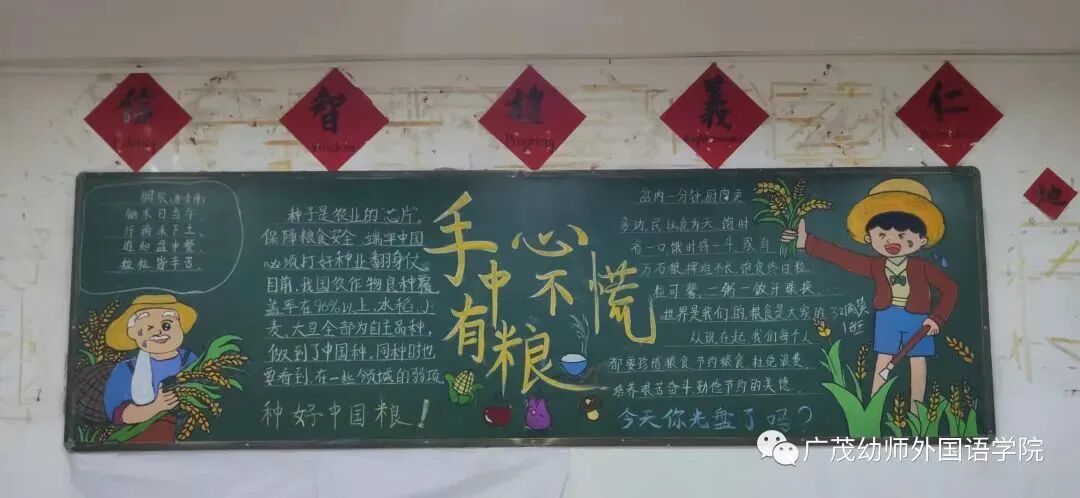 信
智
Wisdom
禮
Propriety
義
仁
地
悯农
锄禾日当午
汗滴禾下土
谁知盘中餐
粒粒皆辛苦
种子是农业的“芯片”。
保障粮食安全、端牢中国
必须打好种业翻身仗
目前,我国农作物良种覆
盖率在96%以上,水稻、小
麦、大豆全部为自主品种,
做到了中国种,同种时也
要看到,在一些领域的弱项
种好中国粮!
手中有粮
心不慌
盆内一分钟,厨房更
多功,民以食为天,饱时
省一口饿时得一斗,家有
万石粮,挥 不长,饱食终日粒
粒可馨,一粥一饭汗珠换
世界是我们的粮食是大家的
32
1班
从现在起,我们每个人
都要珍惜粮食 节约粮食 杜绝浪费
培养艰苦奋斗,勤俭节约的美德。
今天你光盘了吗?
广茂幼师外国语学院